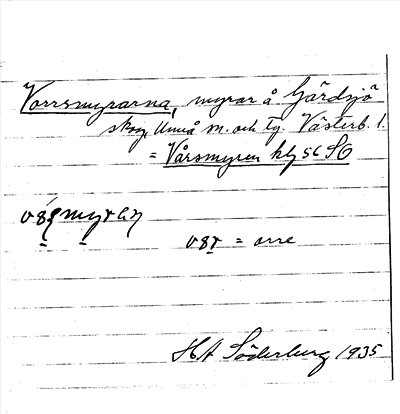 Vorrsmyrarna, myrar å Gärdsjö
skog, Umeå sn. och tg. Västerb. l.
= Vårsmyren kbl 56 SO
= orre
H A Söderberg 1935